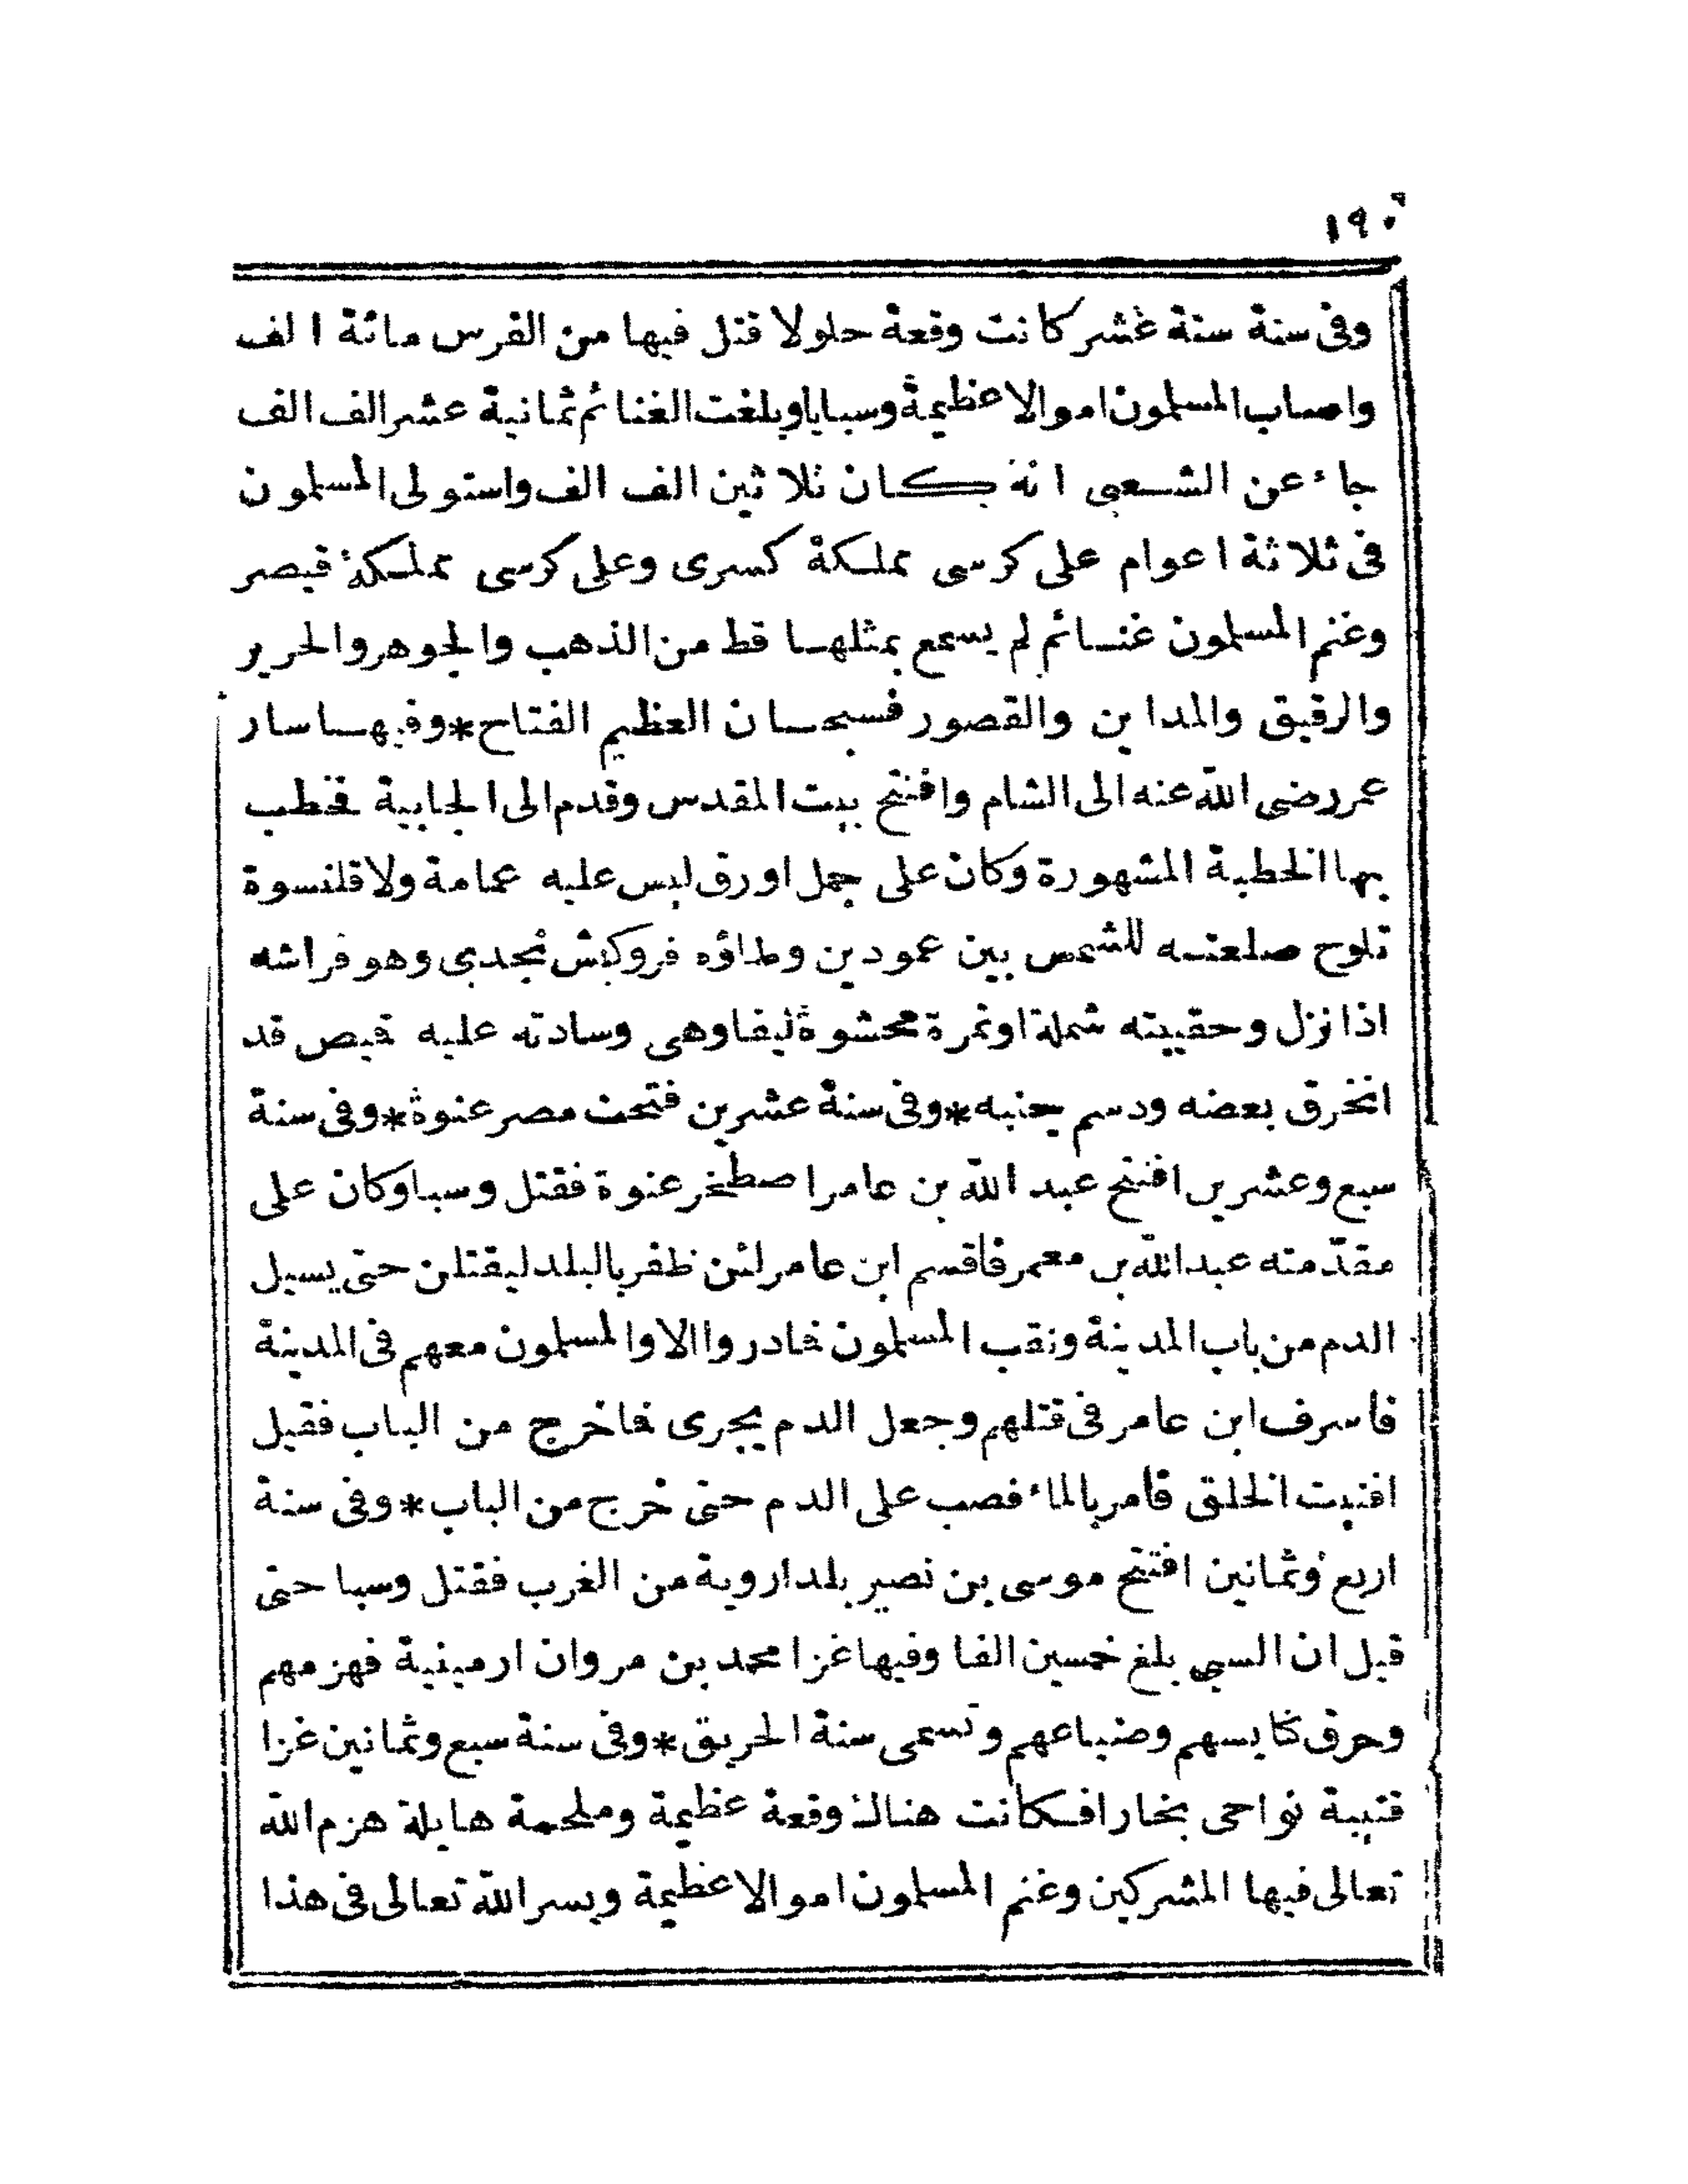 ١٩٠
وفى سنة ستة عشر كانت وقعة حلولا قتل فيها من الفرس مائة الف
واصاب المسلمون اموالا عظيمة وسبايا وبلغت الغنائم ثمانية عشر الف الف
جاء عن الشعبى انه كان ثلاثين الف الف واستولى المسلمون
فى ثلاثة اعوام على كرسى مملكة كسرى وعلى كرسى مملكة قيصر
وغنم المسلمون غنائم لم يسمع بمثلها قط من الذهب والجوهر والحرير
والرقيق والمداين والقصور فسبحان العظيم الفتاح*وفيها سار
عمر رضى الله عنه الى الشام وافتتح بيت المقدس وقدم الى الجابية فخطب
بها الخطبة المشهورة وكان على جمل اورق ليس عليه عمامة ولا قلنسوة
تلوح صلعته للشمس بين عمودين وطاؤه فرو كبش نجدى وهو فراشه
اذا نزل وحقيبته شملة او نمرة محشوة ليفا وهى وسادته عليه قميص قد
انخرق بعضه ودسم جنبه*وفى سنة عشرين فتحت مصر عنوة*وفى سنة
سبع وعشرين افتتح عبد الله بن عامر اصطخر عنوة فقتل وسبا وكان على
مقدّمته عبد الله بن معمر فاقسم ابن عامر لئن ظفر بالبلد ليقتلن حتى يسيل
الدم من باب المدينة ونقب المسلمون فادروا الا والمسلمون معهم فى المدينة
فاسرف ابن عامر فى قتلهم وجعل الدم يجرى فاخرج من الباب فقيل
افنيت الخلق فامر بالماء فصب على الدم حتى خرج من الباب*وفى سنة
اربع وثمانين افتتح موسى بن نصير بلد اروبة من الغرب فقتل وسبا حتى
قيل ان السبى بلغ خمسين الفا وفيها غزا محمد بن مروان ارمينية فهزمهم
وحرق كنايسهم وضياعهم وتسمى سنة الحريق*وفى سنة سبع وثمانين غزا
قتيبة نواحى بخارا فكانت هناك وقعة عظيمة وملحمة هايلة هزم الله
تعالى فيها المشركين وغنم المسلمون اموالا عظيمة ويسر الله تعالى فى هذا